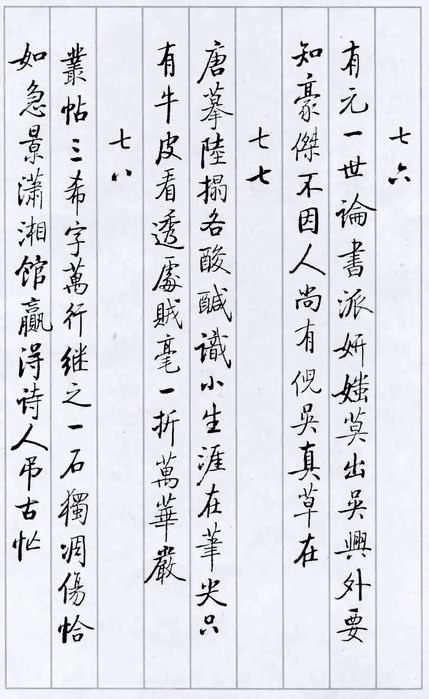 七六
有元一世論書派妍媸莫出吳興外要
知豪傑不因人尚有倪吳真草在
七七
唐摹陸搨各酸醎識小生涯在筆尖只
有牛皮看透處賊毫一折萬華嚴
七八
叢帖三希字萬行继之一石獨凋傷恰
如急景潇湘馆贏得诗人吊古忙